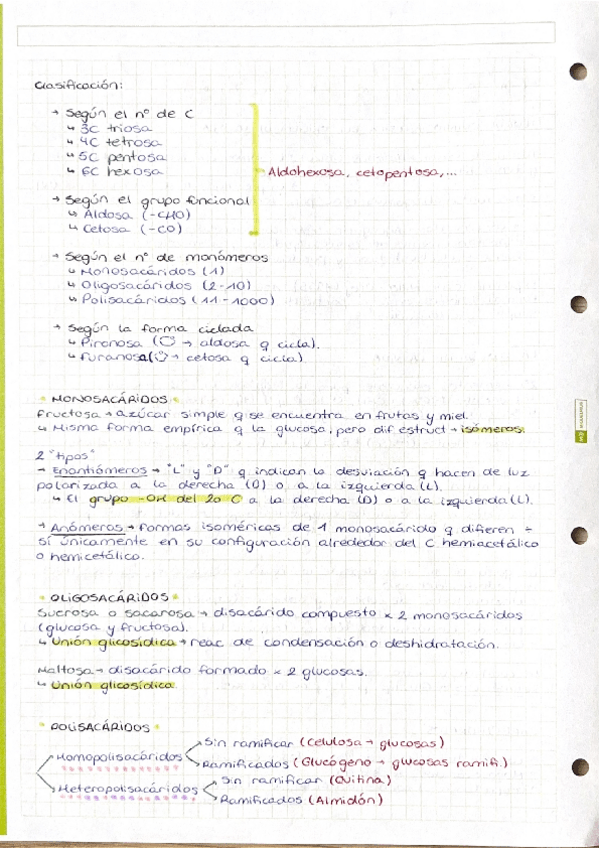 Clasificación:
→ Según el nº de C
↳ 3C triosa
↳ 4C tetrosa
↳ 5C pentosa
↳ 6C hexosa
Aldohexosa, cetopentosa,...
→ Según el grupo funcional
↳ Aldosa (-CHO)
↳ Cetosa (-CO)
→ Según el nº de monómeros
↳ Monosacáridos (1)
↳ Oligosacáridos (2-10)
↳ Polisacáridos (11-1000)
→ Según la forma ciclada
↳ Piranosa ( → aldosa q cicla).
↳ Furanosa ( → cetosa q cicla)
MONOSACÁRIDOS
Fructosa → azúcar simple q se encuentra en frutas y miel.
↳ Misma forma empírica q la glucosa, pero dif estruct → isómeros.
2 "tipos"
→ Enantiómeros → "L" y "D" q indican la desviación q hacen de luz
polarizada a la derecha (D) o a la izquierda (L).
↳ El grupo -OH del 2o C a la derecha (D) o a la izquierda (L).
→ Anómeros → formas isoméricas de 1 monosacárido q difieren ÷
sí únicamente en su configuración alrededor del C hemiacetálico
o hemicetálico.
OLIGOSACÁRIDOS
Sucrosa o sacarosa → disacárido compuesto x 2 monosacáridos
(glucosa y fructosa).
↳ Unión glicosídica → reac de condensación o deshidratación.
Maltosa → disacárido formado x 2 glucosas.
↳ Unión glicosídica
POLISACÁRIDOS
Homopolisacáridos
Sin ramificar (Celulosa → glucosas)
Ramificados (Glucógeno → glucosas ramif.)
Heteropolisacáridos
Sin ramificar (Quitina)
Ramificados (Almidón)